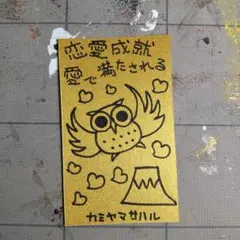 恋愛成就
愛で満たされる
カミヤマサハル